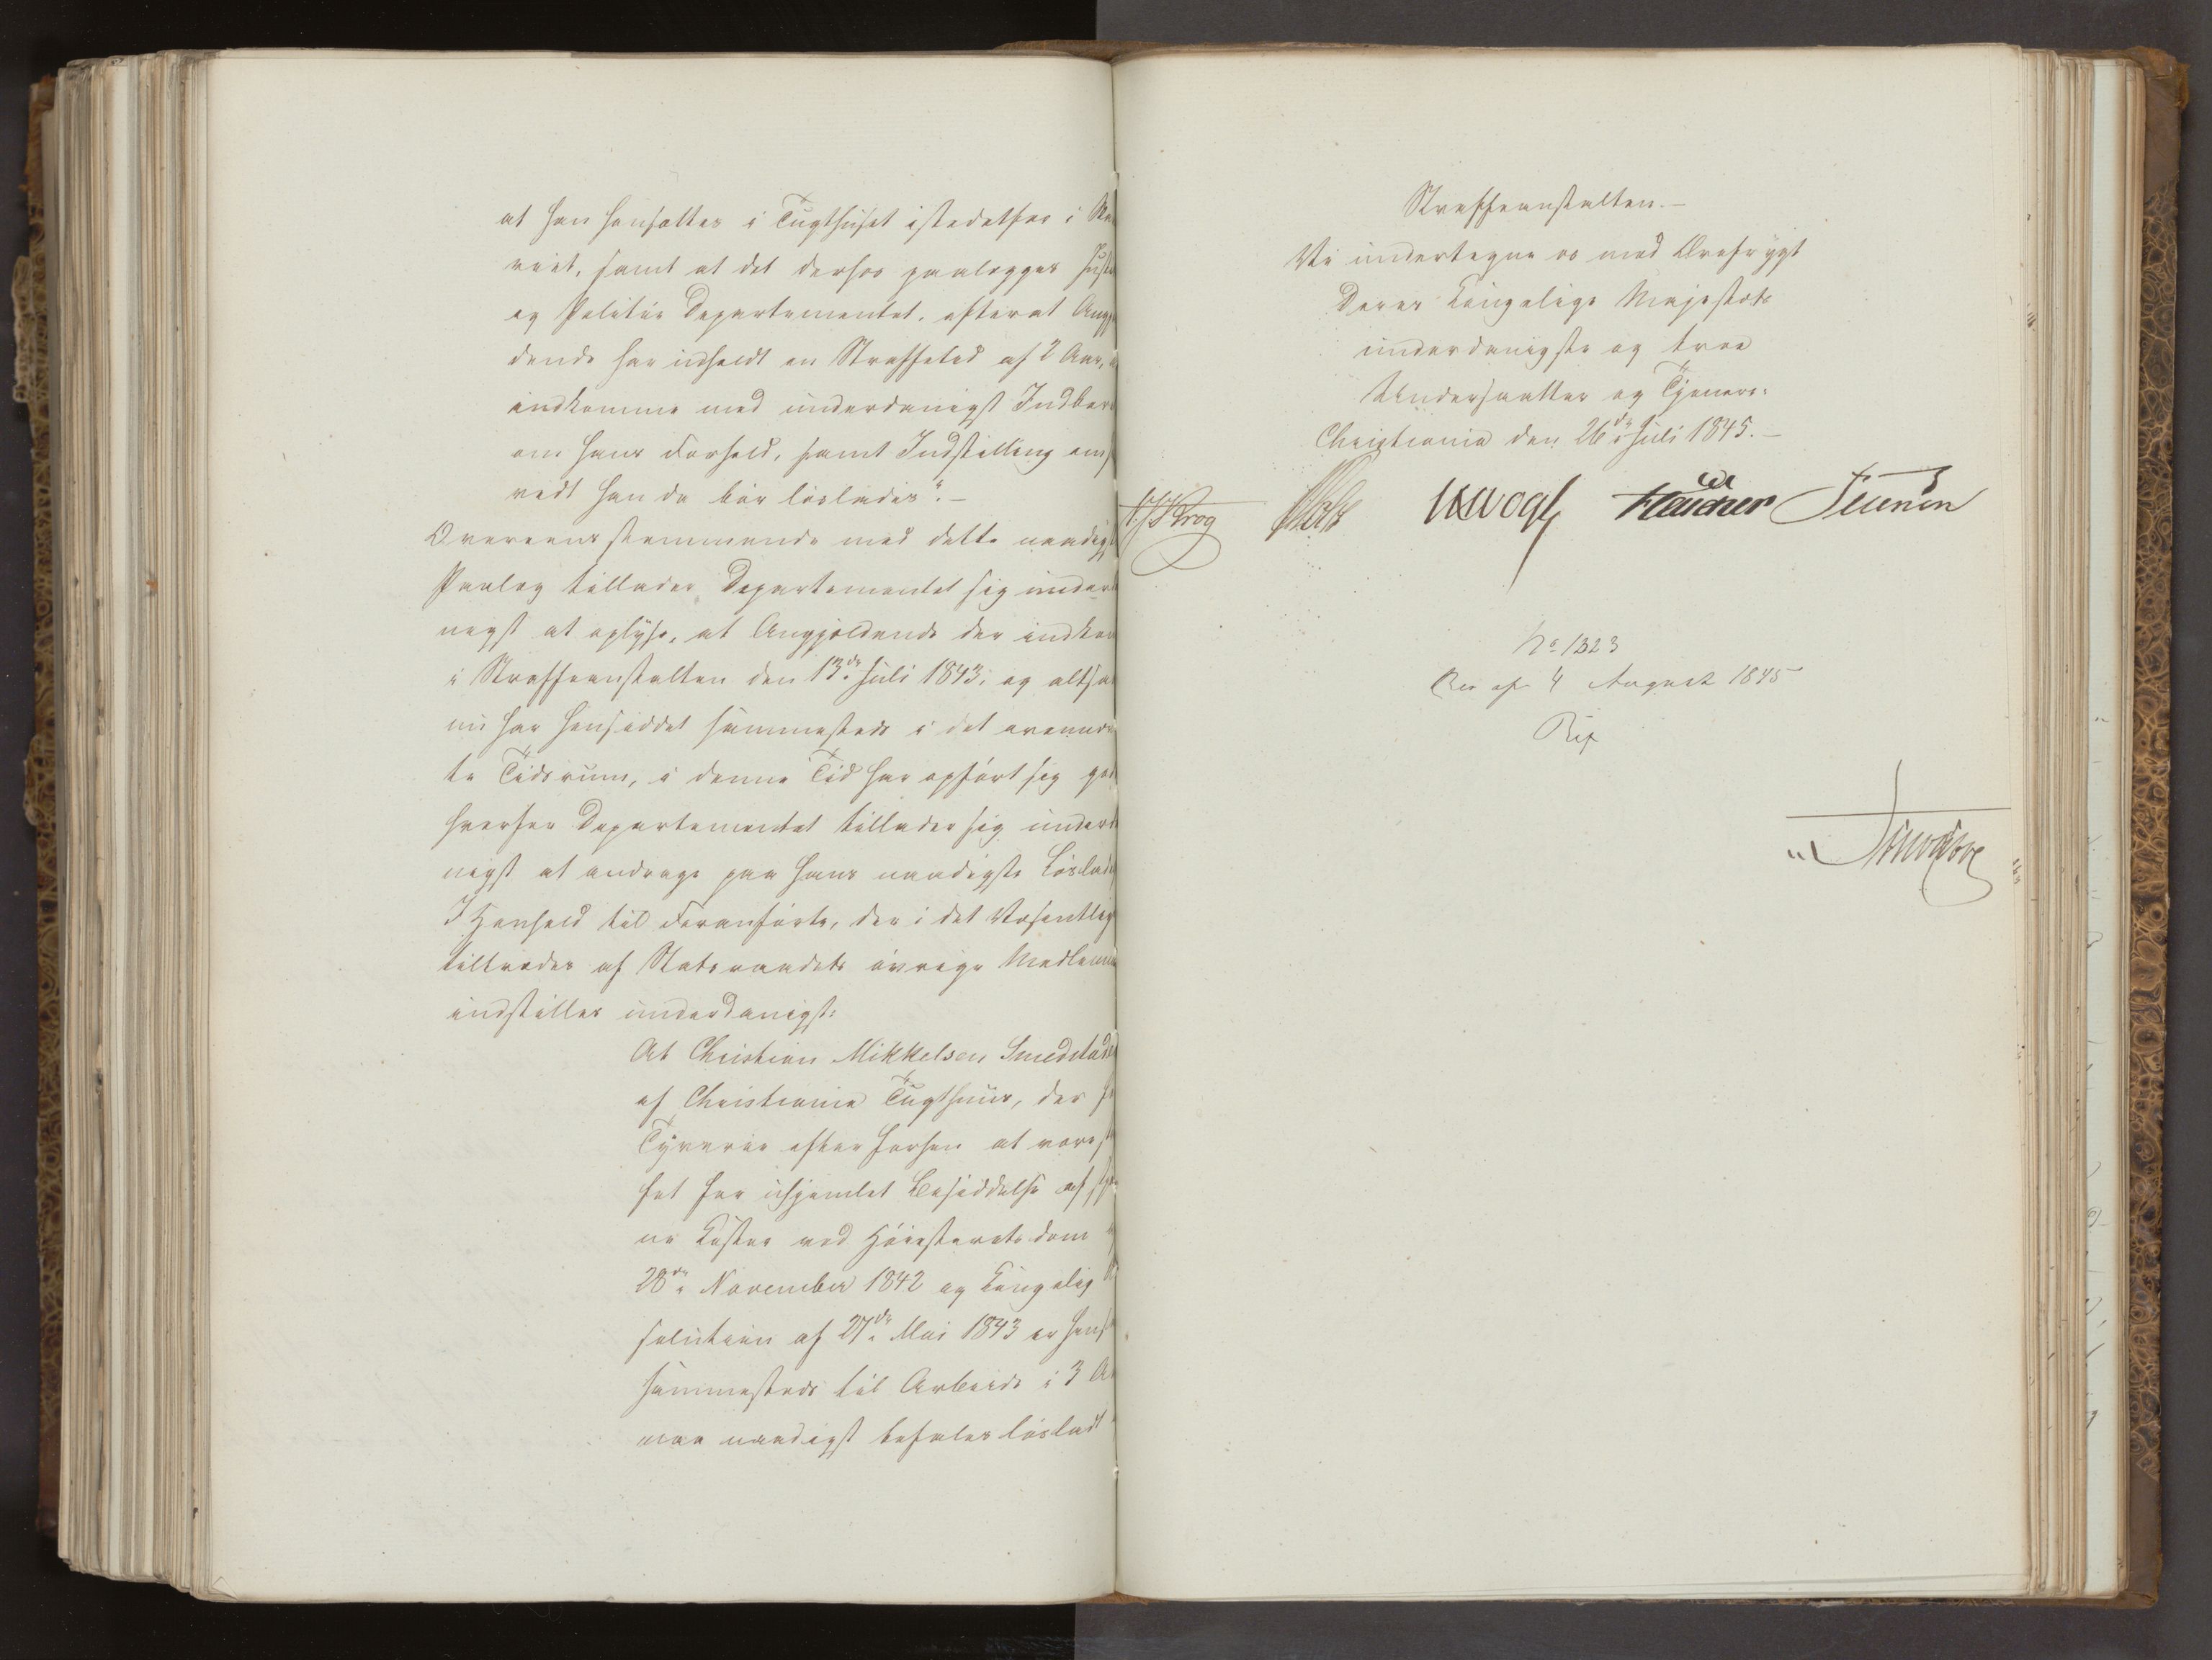 at han hensættes i Tugthuset istedetfor i Sla
veriet, samt at det derhos paalægges Justi
og Politie Departementet, efterat Angj
dende har udholdt en Straffetid af 2 Aar,
indkomme med underdanigst Indber
om hans Forhold, samt Indstilling om
vidt han da bør løslades“.–
Overeensstemmende med dette naadigst
Paalæg tillader Departementet sig underd
nigst at oplyse, at Angjeldende der indkom
i Straffeanstalten den 13de Juli 1843, og altsaa
nu har hensiddet sammesteds i det ovennæv
te Tidsrum, i denne Tid har opført sig godt
hvorfor Departementet tillader sig underd
nigst at andrage paa hans naadigste Løslad
I Henhold til Foranførte, der i det Væsentlige
tiltrædes af Statsraadets øvrige Medlemm
indstilles underdanigst:
At Christian Mikkelsen Smedstad
af Christiania Tugthuus, der fo
Tyverie eller forsøn at være
sat for uhjemlet Besiddelse af stjaa
ne Koster ved Høiesteretsdom
28de November 1842 og Kongelig R
solution af 27de Mai 1843 er hens
sammesteds til Arbeide i 3 A
maa naadigst befales løsladt
Straffeanstalten.–
Vi undertegne os med Ærefrygt
Deres Kongelige Majestæts
underdanigste og troe
Undersaatter og Tjenere:
Christiania den 26de Juli 1845.–
Krog Holst Vogt
No 1323
Res af 4 August 1845